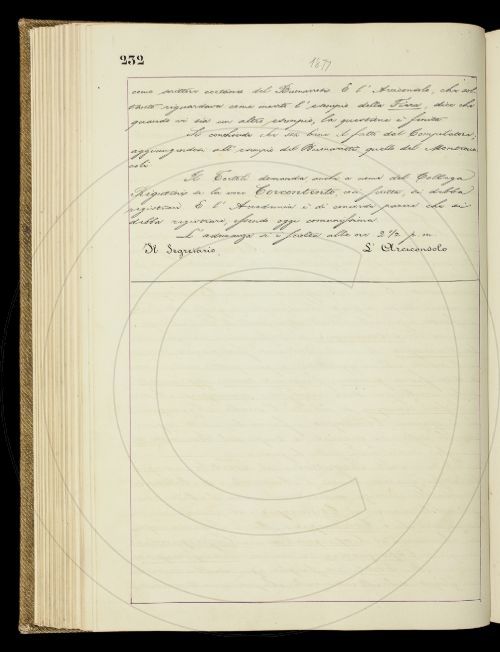 232
1677
come scrittore certano del Buonarroti E l'Arciconsolo, che sol
tanto riguardava come morto l'esempio della Fiera, dice che
quando vi sia un altro esempio, la questione è finita
Si conchiude che sta bene il fatto del Compilatore,
aggiungendosi all'esempio del Buonarroti quello del
celi
Il Tortoli domanda anche a nome del Collega
Rigutini se la voce Corcontento, così scritta, si debba
registrare E l'Accademia è di concorde parere che si
debba registrare, essendo oggi comunissima
L'adunanza si è sciolta alle ore 2 1/2 p. m.
Il Segretario
L'Arciconsolo